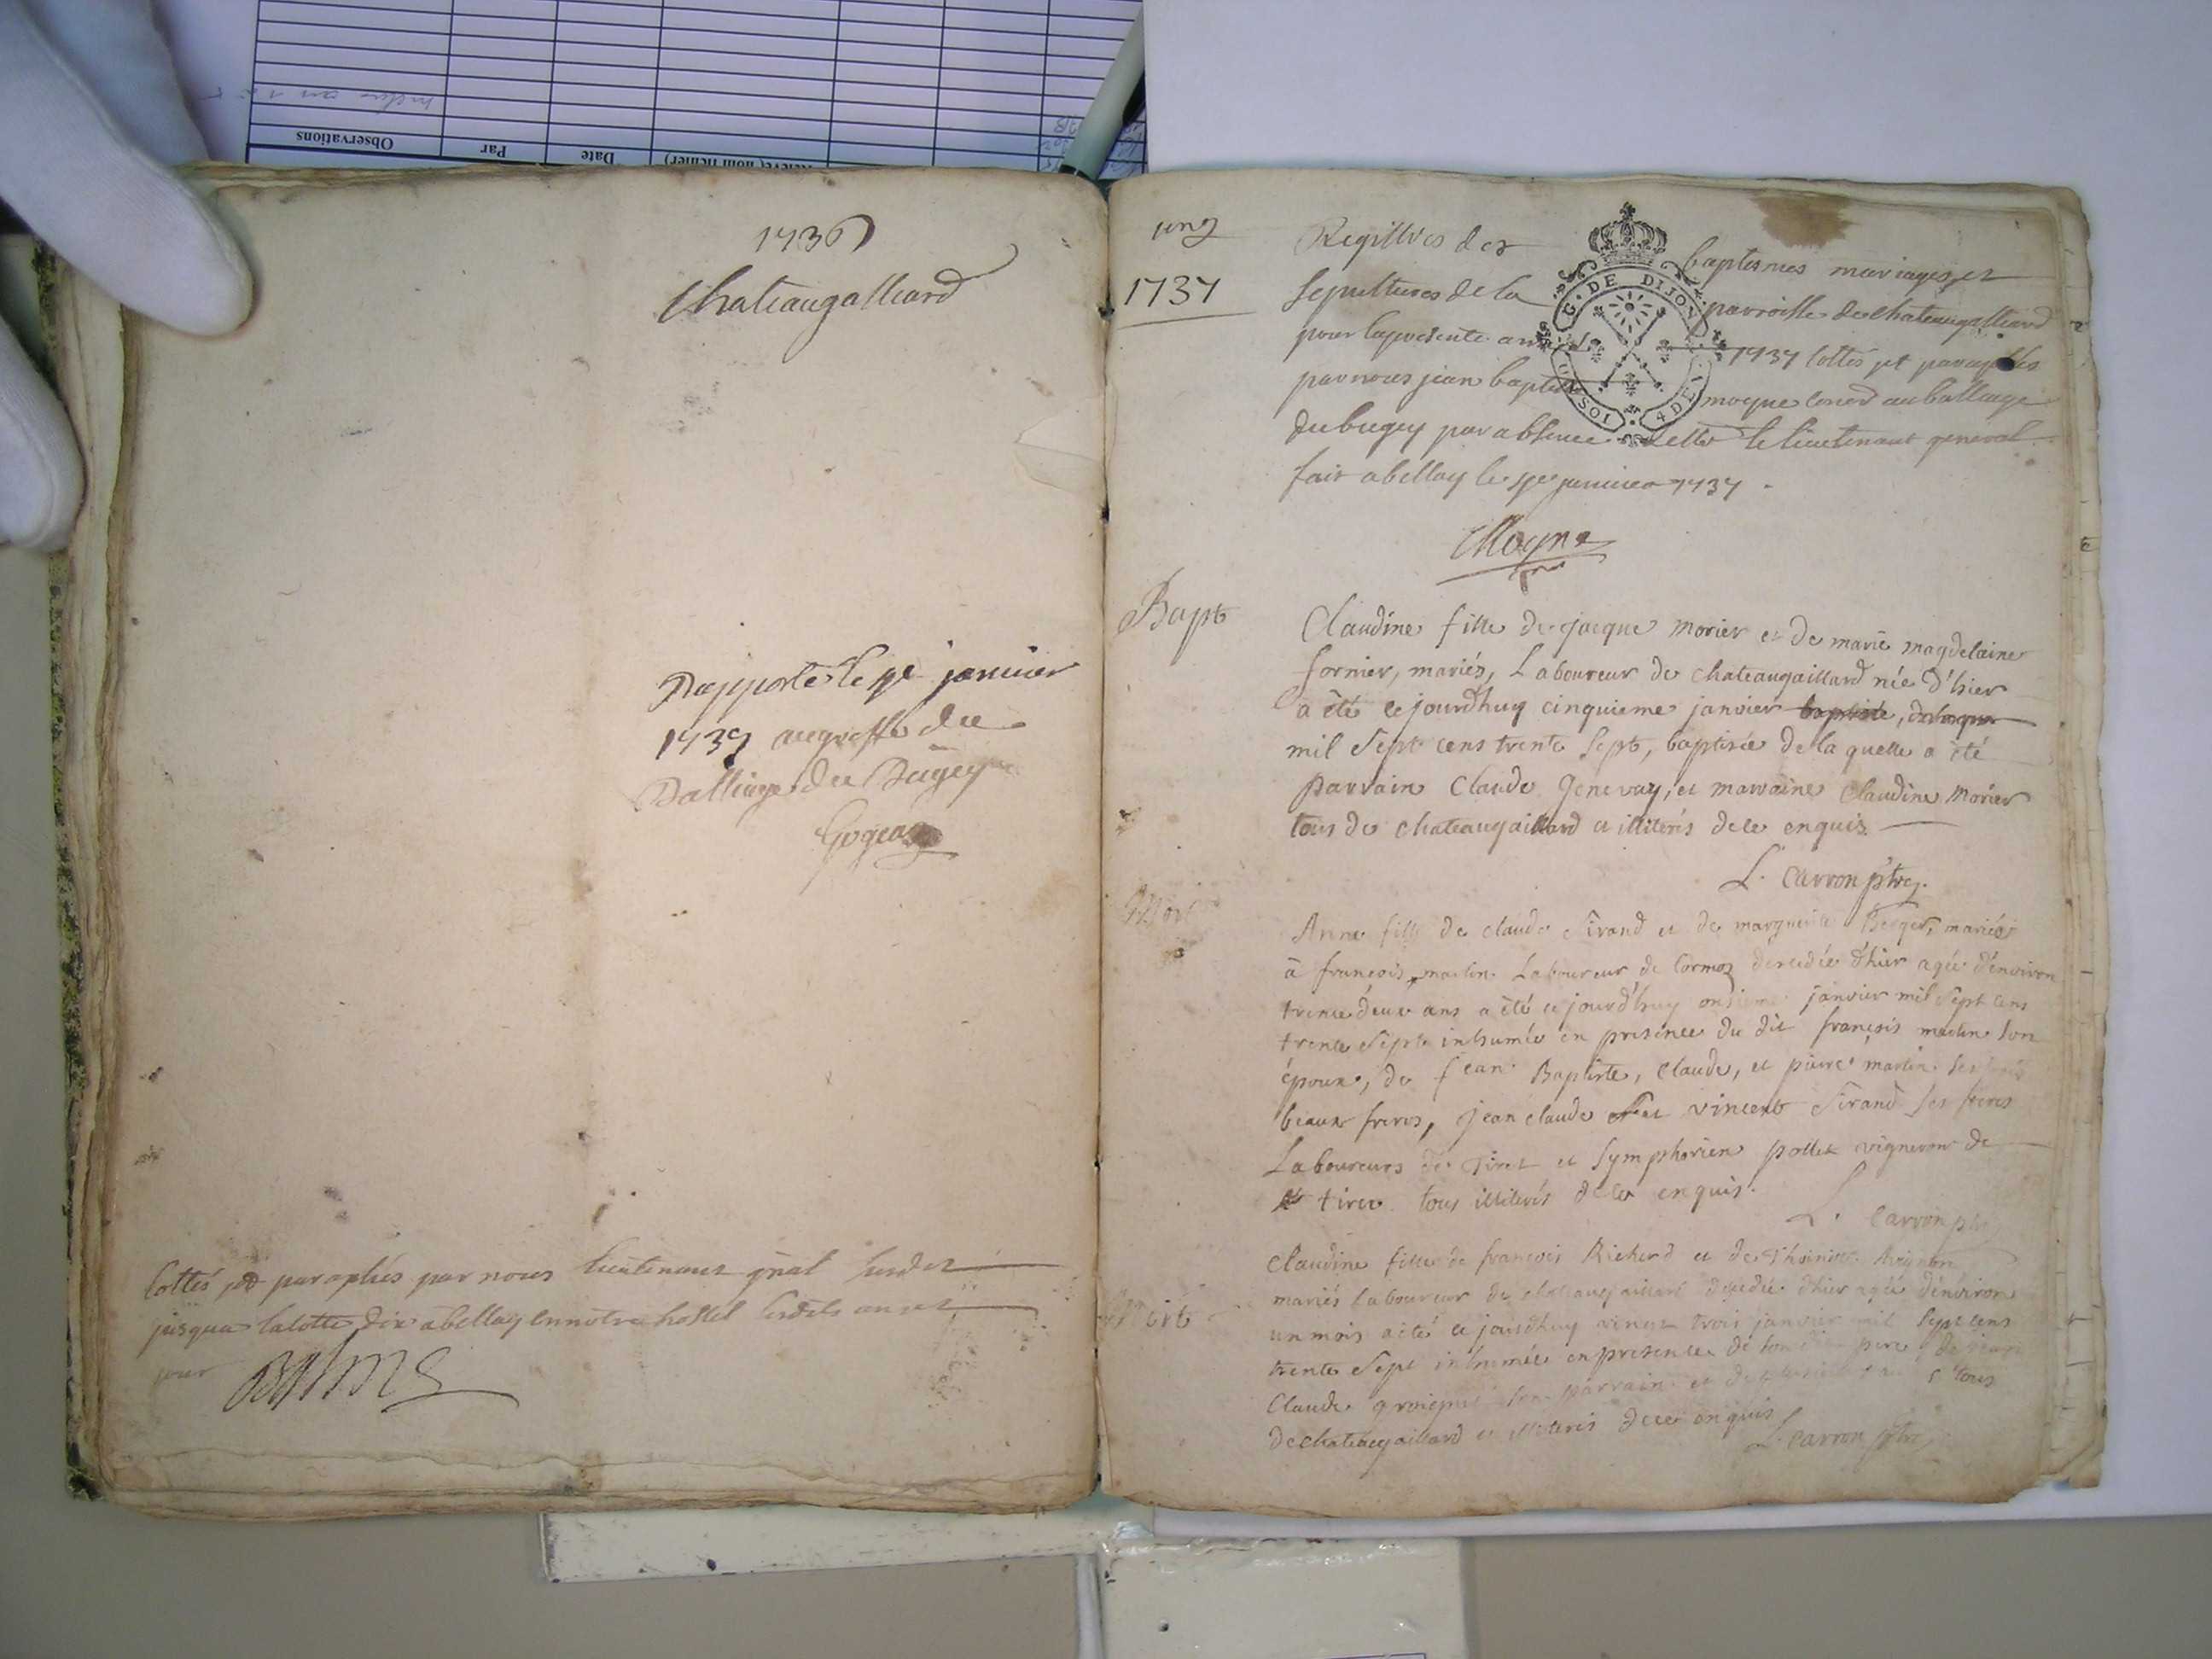 Observations
Par
Date
1736
Chateaugalliard
Rapporté le 1er janvier
1737 au greffe du
Balliage du Bugey
cottés et paraphés par nous lieutenant gnal susdit
jusqua la cotte dix a bellay en notre hostel lesdits an et
jour
Balme
ung
1737
Registres des baptesmes mariages et
sepultures de la parroisse de chateaugalliard
pour la presente année 1737 cottés et paraphés
par nous jean baptiste moyne coner au balliage
du bugey par absence de Mr le lieutenant general
fait a bellay le 1er janvier 1737
G. DE DIJON
4 DEN
Moyne
Bapt
Claudine fille de jacque morier et de marie magdelaine
fornier, mariés, Laboureur de chateaugaillard née d'hier
a été cejourdhuy cinquieme janvier baptisée,
mil sept cens trente sept, baptisée de laquelle a été
parrain Claude Genevay, et marraine Claudine morier
tous de chateaugaillard et illiterés de ce enquis.
L. Carron ptre.
Mort
Anne fille de claude Sirand et de marguerite Berger, mariée
à françois martin Laboureur de Cormoz decedée d'hier agée d'environ
trente deux ans a été ce jourd'huy onsieme janvier mil sept cens
trente sept inhumée en presence du dit françois martin son
époux, de jean Baptiste, Claude, et pierre martin ses
beaux freres, jean claude et vincent Sirand ses freres
Laboureurs de Tiret et Symphorien pollet vigneron de
tiret tous illiterés de ce enquis.
L. Carron ptre
Morte
Claudine fille de françois Richerd et de
mariés Laboureur de chateaugaillard decedée d'hier agée d'environ
un mois a été ce jourdhuy vingt trois janvier mil sept cens
trente sept inhumée en presence de son pere, de jean
Claude son parrain et de tous
de chateaugaillard et illiterés de ce enquis
L. Carron ptre